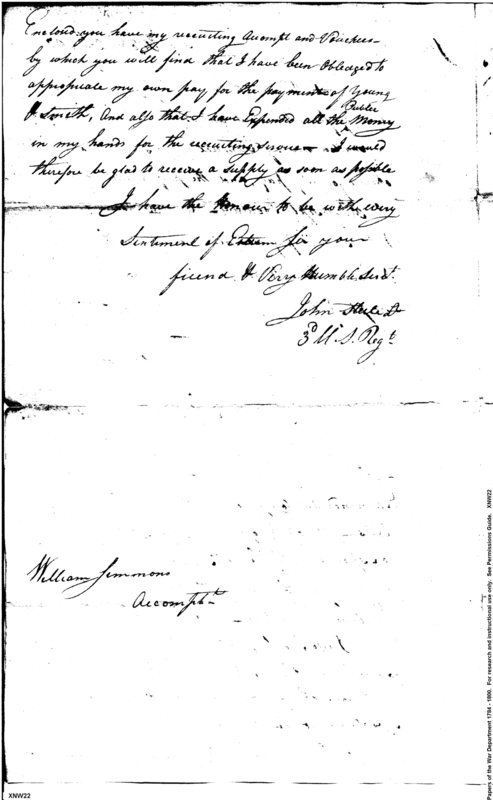 Enclosed you have my recruiting Accompt and Vouchers
by which you will find that I have been Obledged to
appropriate my own pay, for the payments of Young
& Smith, And also that I have Expended all the Public Money
in my hands for the recruiting Service I would
therefore be glad to receive a supply as soon as possible
I have the Honour to be with every
Sentiment of Esteem Sir your
friend & Very Humble Servt.
John Steele Lt
3d U. S. Regt
William Simmons
Accompt
Papers of the War Department 1784 - 1800. For research and instructional use only. See Permissions Guide. XNW22
XNW22